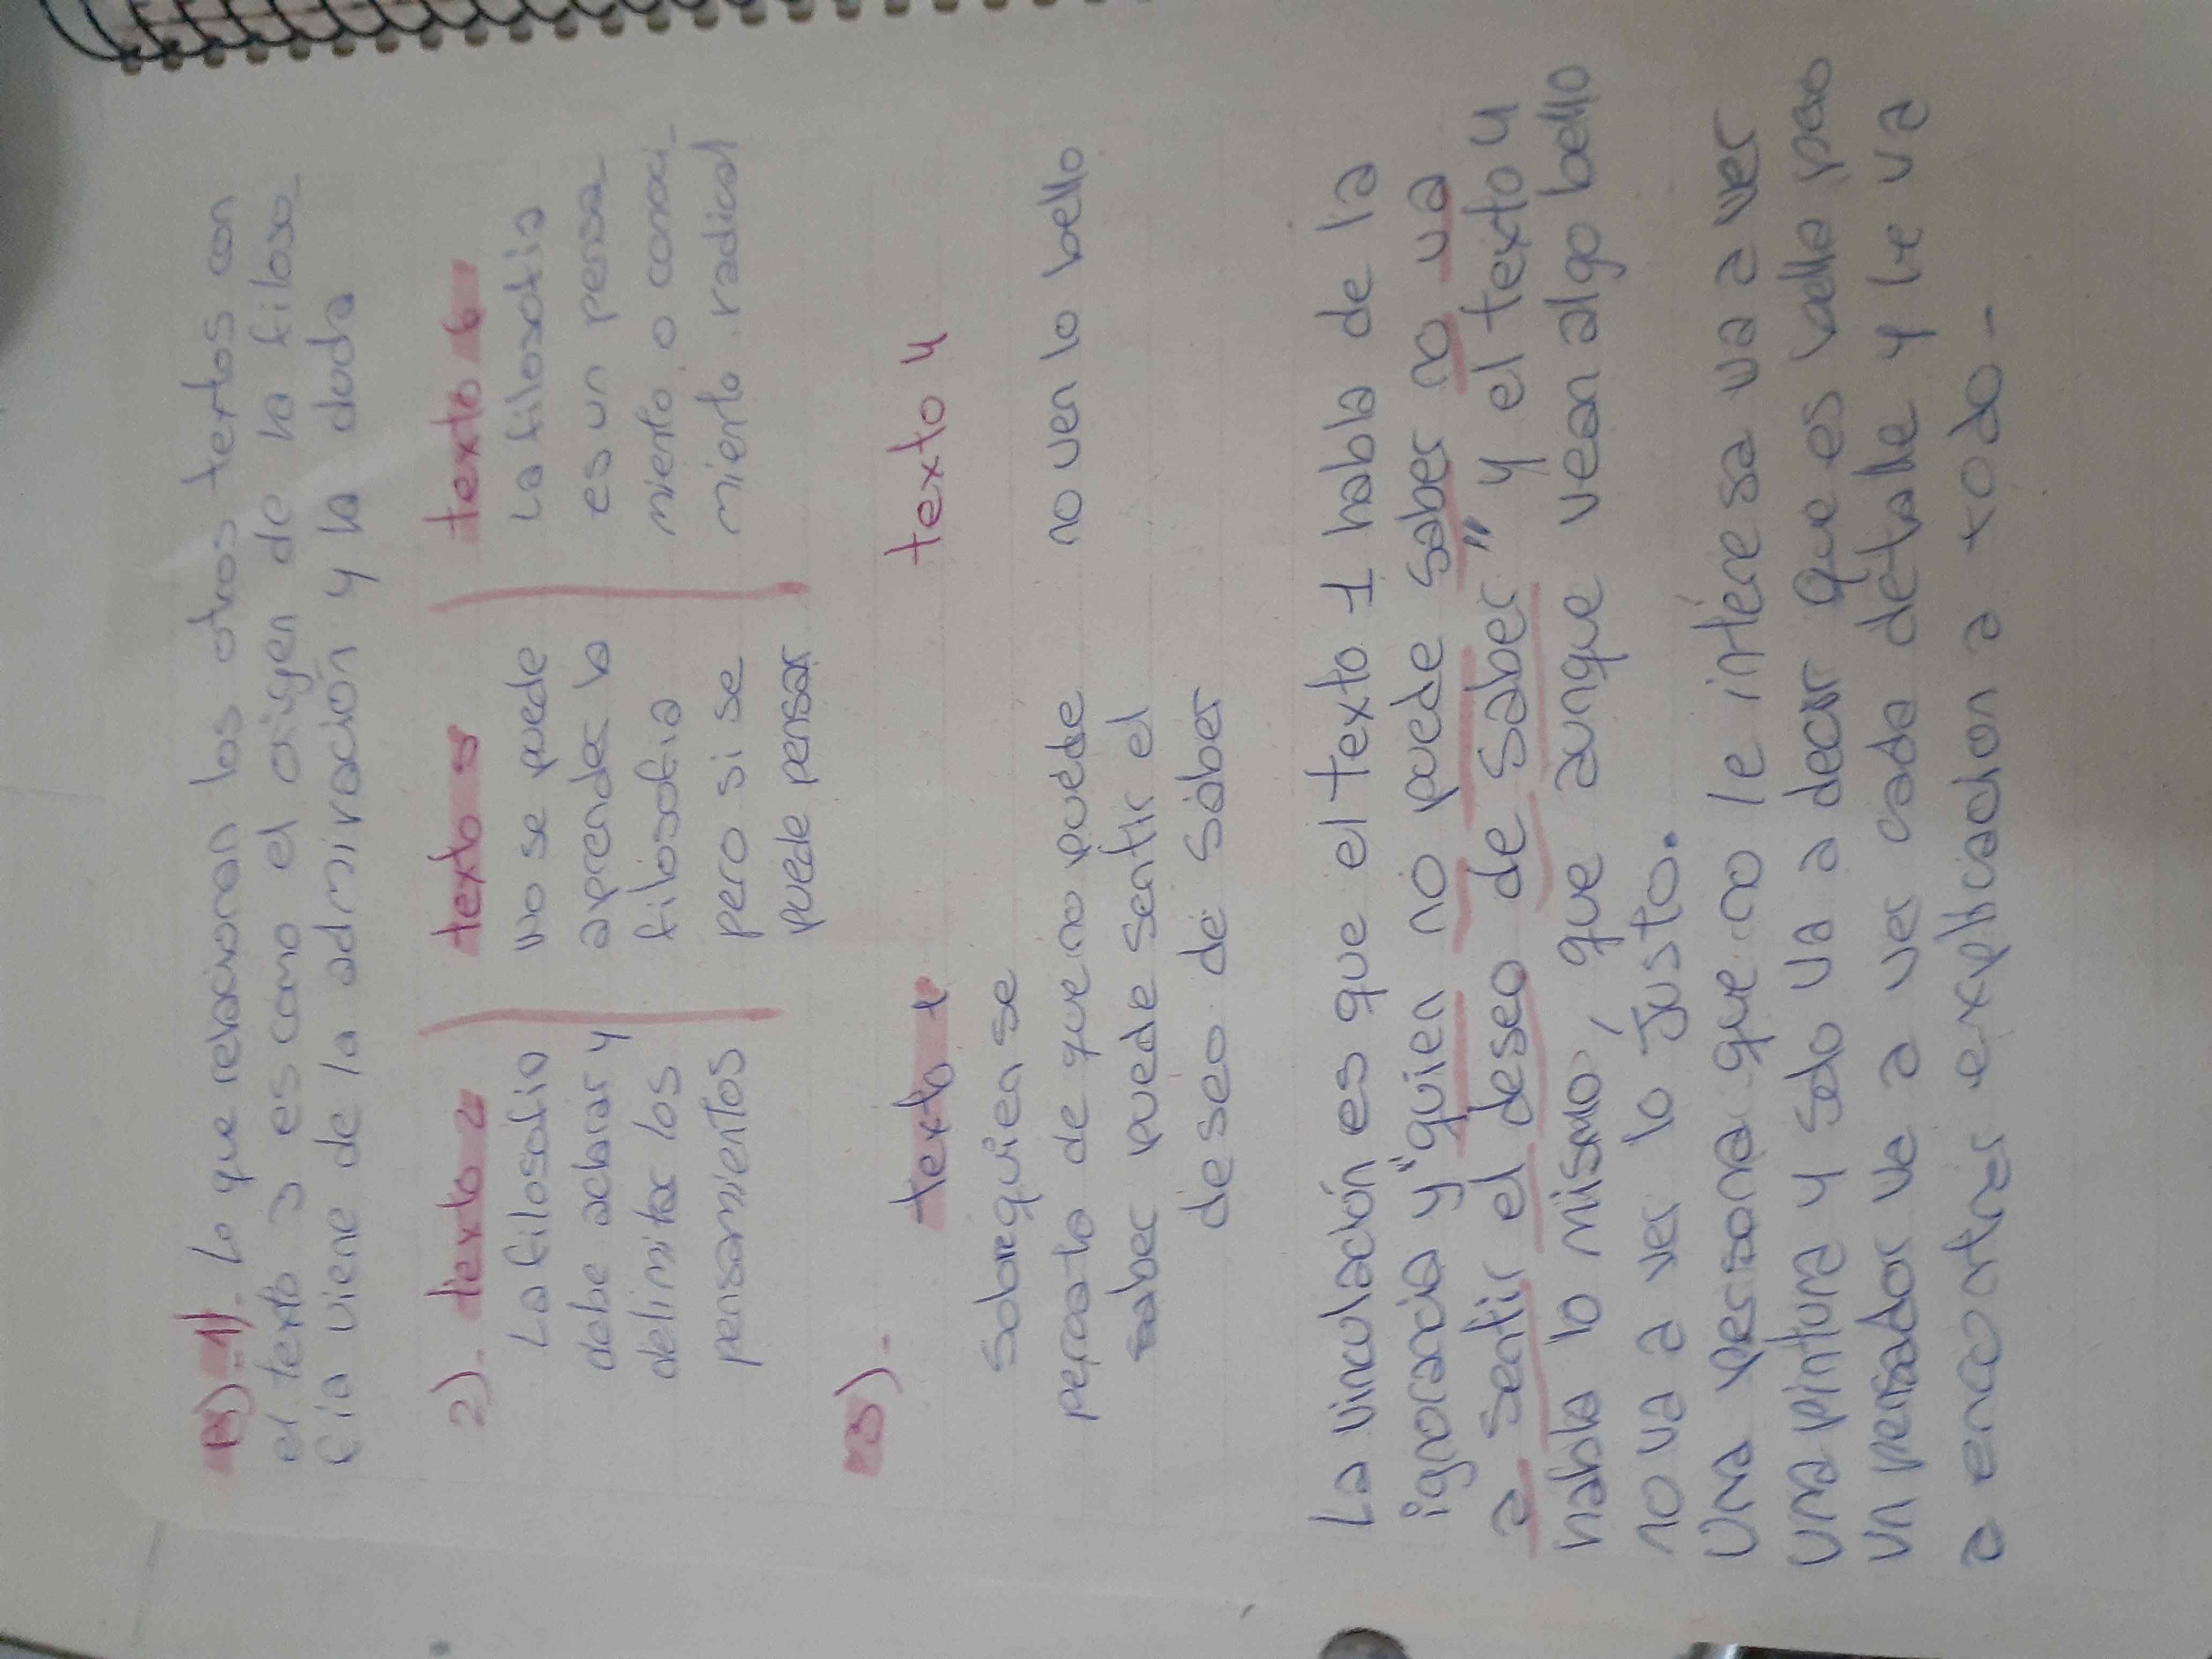 B)-1)- Lo que relacionan los otros textos con
el texto 3 es como el origen de la filoso-
fia viene de la admiración y la duda
2)- texto 2
La filosofia
debe aclarar y
delimitar los
pensamientos
texto 5
No se puede
aprender la
filosofia
pero si se
puede pensar
texto 6
La filosofia
es un pensa-
miento o conoci-
miento radical
3)-
texto 1
Sobre quien se
percato de que no puede
saber puede sentir el
deseo de saber
texto 4
no ven lo bello
La vinculación es que el texto 1 habla de la
ignorancia y "quien no puede saber no va
a sentir el deseo de saber" y el texto 4
habla lo mismo, que aunque vean algo bello
no va a ver lo justo.
Una persona que no le interesa va a ver
una pintura y solo va a decir que es bella pero
un pensador va a ver cada detalle y le va
a encontrar explicacion a todo-